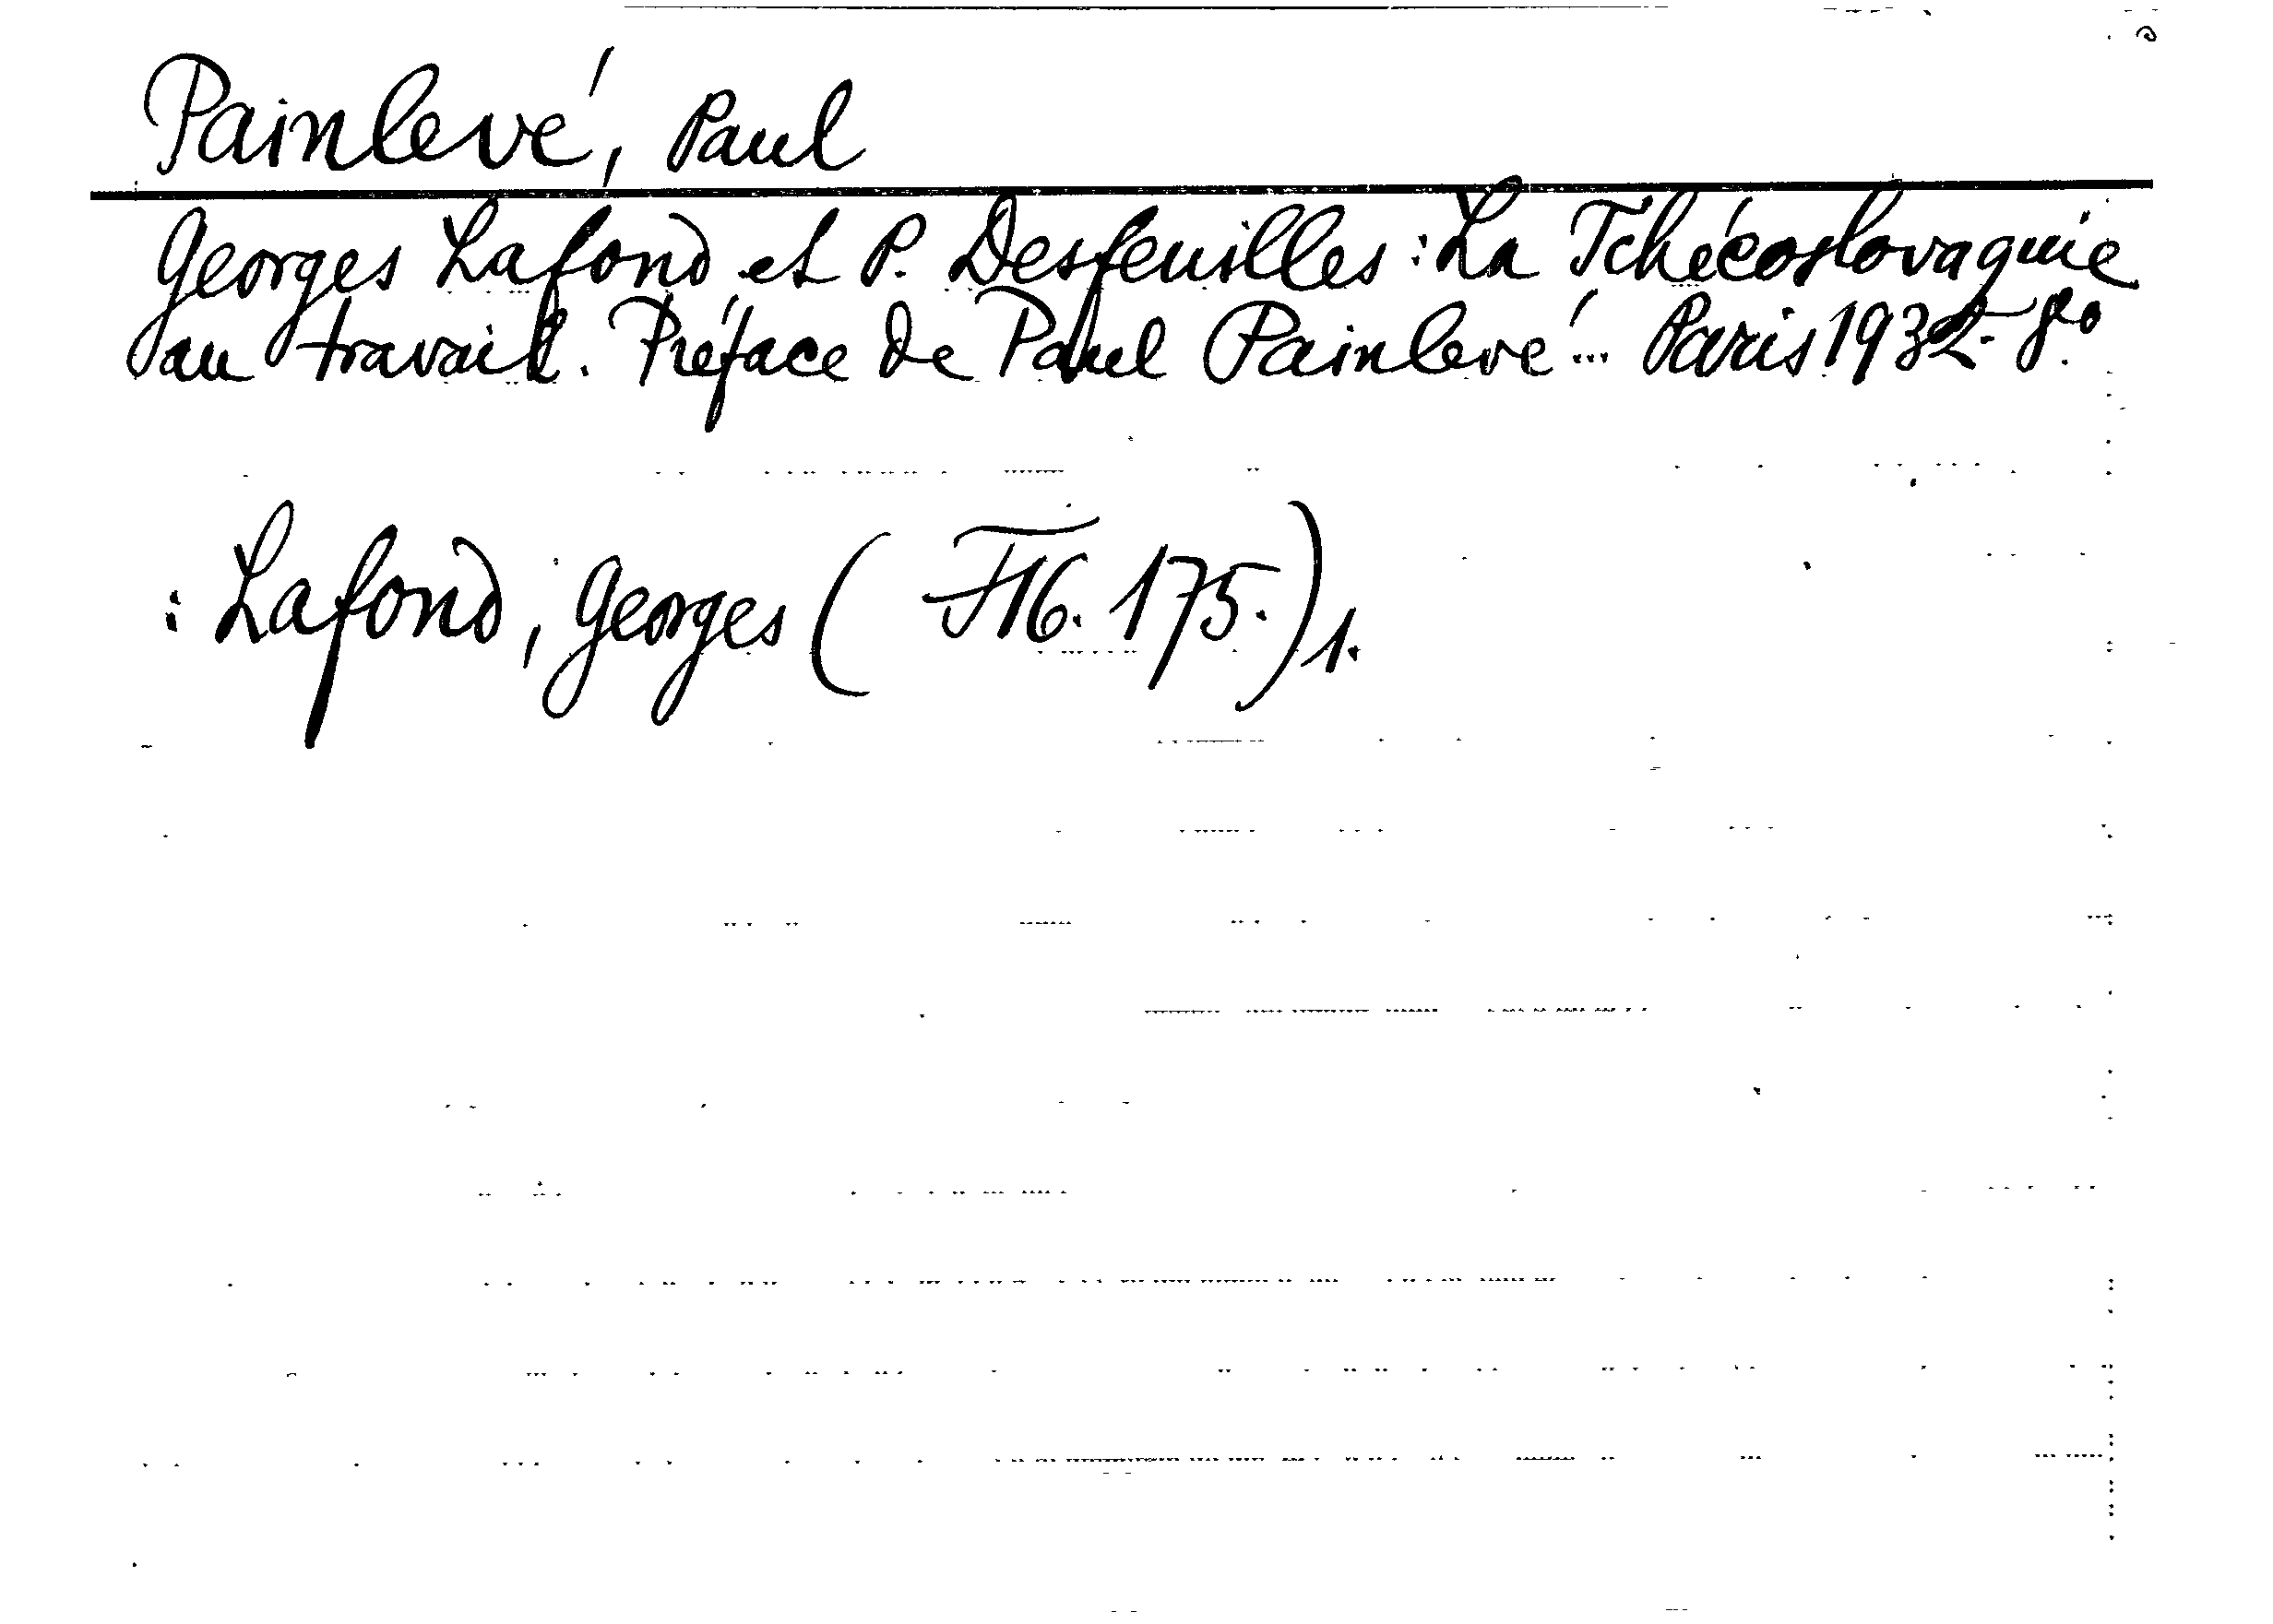 Painlevé, Paul
Georges Lafond et P. Desfeuilles : La Tchécoslovaquie
au travail. Préface de Paul Painlevé... Paris 1932. 8.º
: Lafond, Georges ( F 16. 175. ) 1.